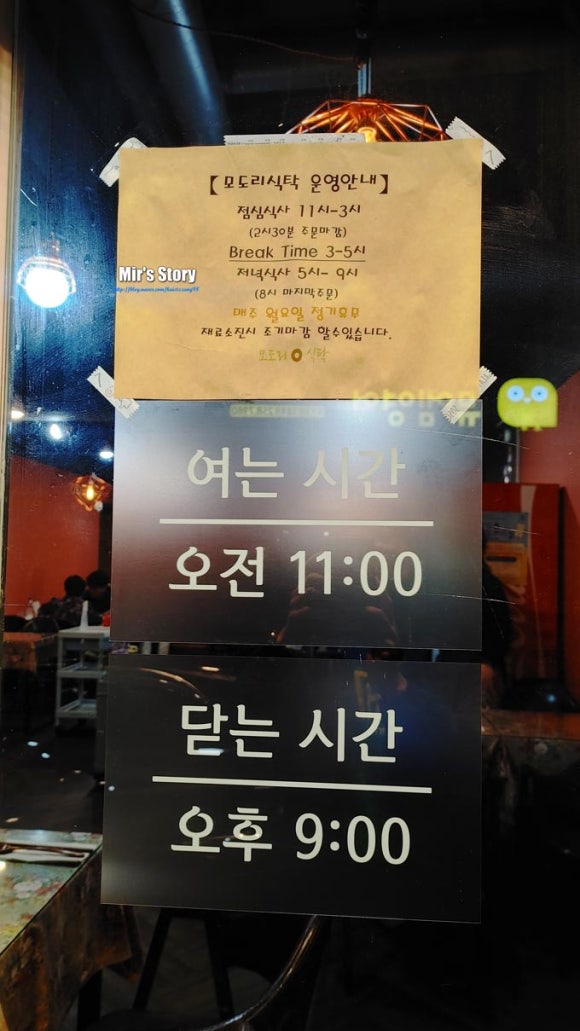 【모도리식탁 운영안내】
점심식사 11시-3시
(2시30분 주문마감)
Break Time 3-5시
Mir's Story
저녁식사 5시- 9시
(8시 마지막주문)
매주 월요일 정기휴무
재료소진시 조기마감 할수있습니다.
모도리 식탁
여는 시간
오전 11:00
닫는 시간
오후 9:00